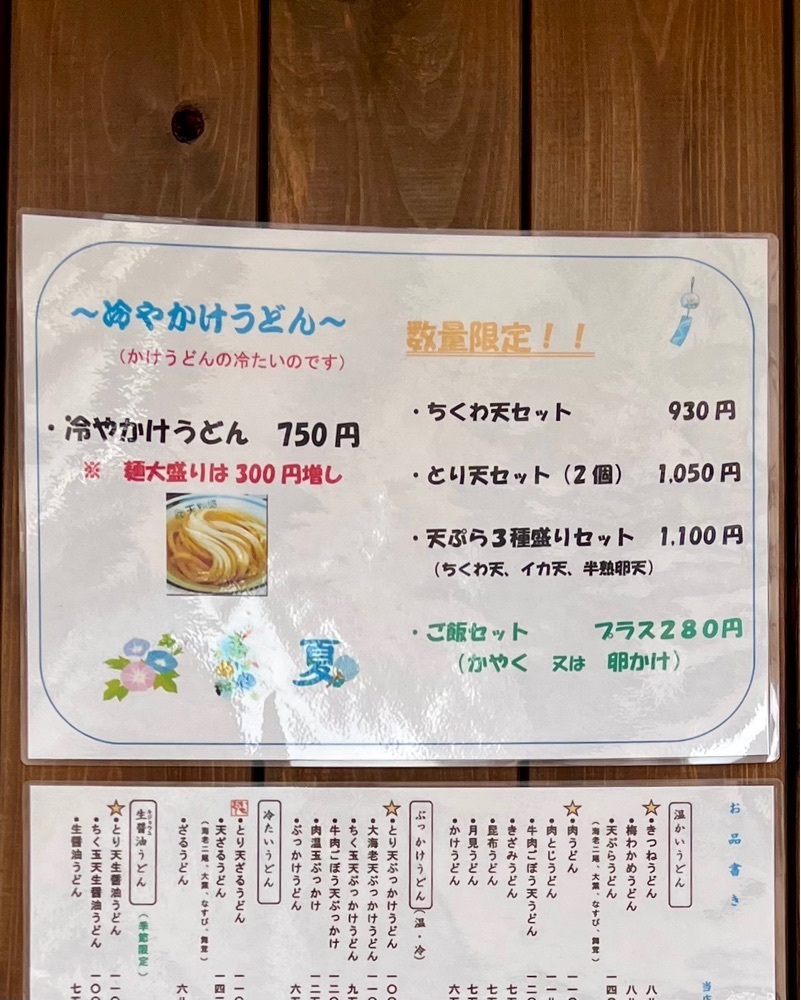 ～冷やかけうどん～
（かけうどんの冷たいのです）
・冷やかけうどん 750円
※ 麺大盛りは300円増し
夏
数量限定！！
・ちくわ天セット 930円
・とり天セット（2個） 1,050円
・天ぷら3種盛りセット 1,100円
（ちくわ天、イカ天、半熟卵天）
・ご飯セット プラス280円
（かやく 又は 卵かけ）
お品書き
温かいうどん
・きつねうどん
・梅わかめうどん
・天ぷらうどん
（海老二尾、大葉、なすび、舞茸）
・肉うどん
・肉とじうどん
・牛肉ごぼう天うどん
・きざみうどん
・昆布うどん
・月見うどん
・かけうどん
ぶっかけうどん（温・冷）
・とり天ぶっかけうどん
・大海老天ぶっかけうどん
・ちく玉天ぶっかけうどん
・牛肉ごぼう天ぶっかけ
・肉温玉ぶっかけ
・ぶっかけうどん
冷たいうどん
・とり天ざるうどん
・天ざるうどん
（海老二尾、大葉、なすび、舞茸）
・ざるうどん
生醤油うどん（季節限定）
・とり天生醤油うどん
・ちく玉天生醤油うどん
・生醤油うどん